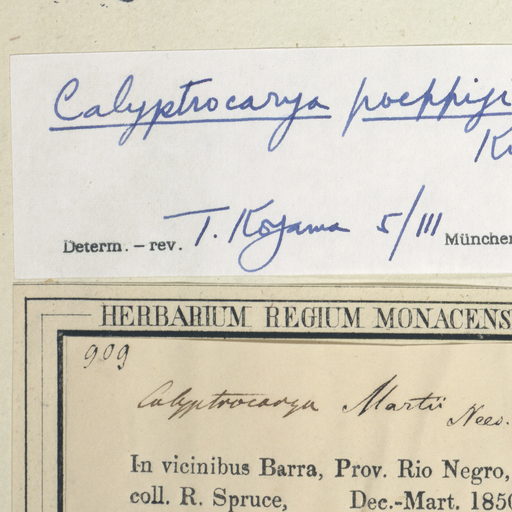 Calyptrocarya poeppigi
K
Determ. – rev. T. Koyama 5/III München
HERBARIUM REGIUM MONACENS
909
Calyptrocarya Martii Nees.
In vicinibus Barra, Prov. Rio Negro,
coll. R. Spruce, Dec.-Mart. 1850